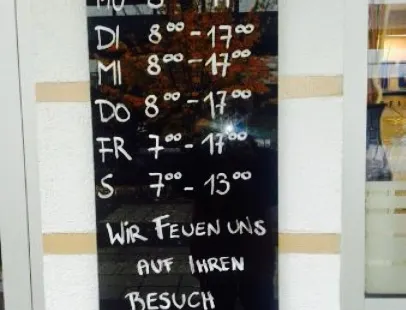 DI 8⁰⁰ - 17⁰⁰
MI 8⁰⁰ - 17⁰⁰
DO 8⁰⁰ - 17⁰⁰
FR 7⁰⁰ - 17⁰⁰
S 7⁰⁰ - 13⁰⁰
WIR FEUEN UNS
AUF IHREN
BESUCH